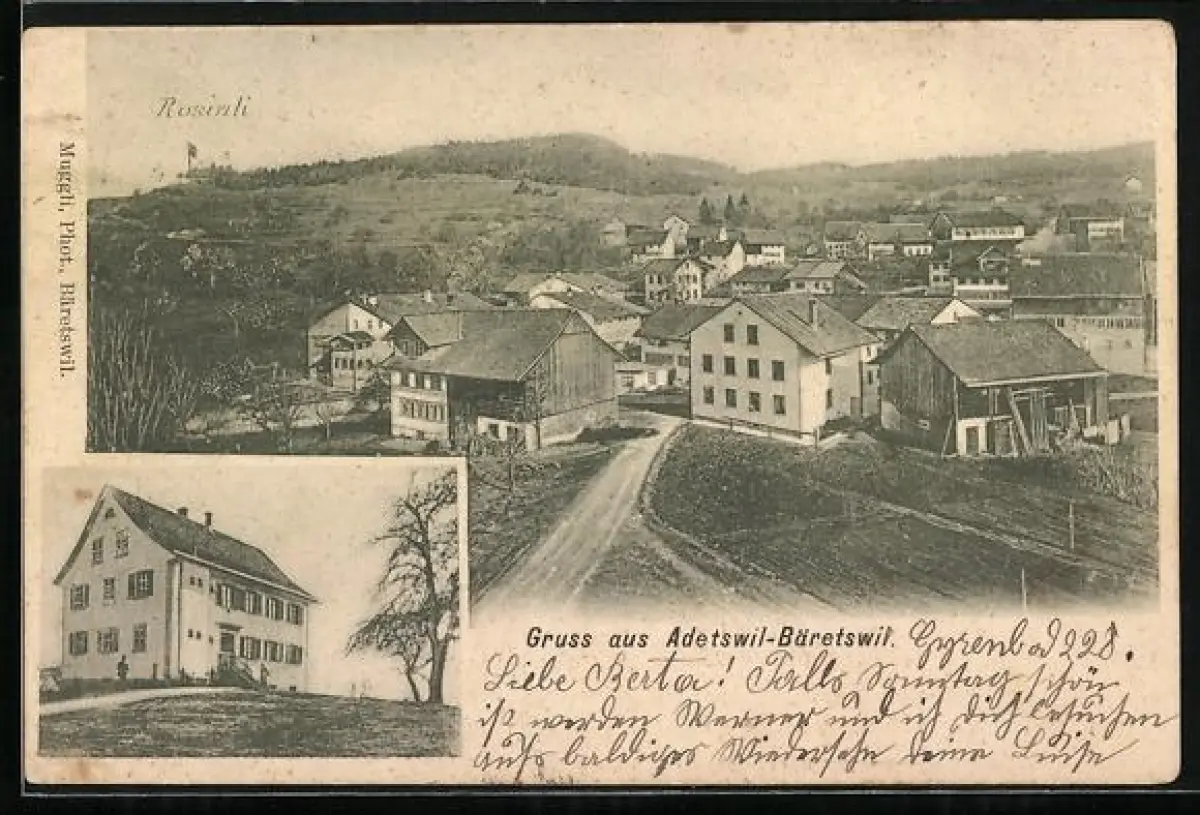 Rosinli
Muggli, Phot., Bäretswil.
Gruss aus Adetswil-Bäretswil. Gyrenbad 228.
Liebe Berta! Falls Sonntag schön
ist werden Werner und ich dich besuchen
aufs baldiges Wiedersehn deine Luise